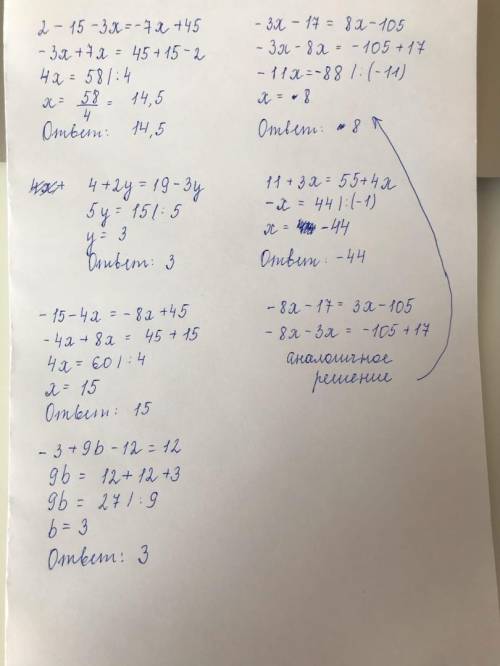 2 - 15 - 3x = -7x + 45
-3x + 7x = 45 + 15 - 2
4x = 58 |: 4
x = 58/4 = 14,5
Ответ: 14,5
4 + 2y = 19 - 3y
5y = 15 |: 5
y = 3
Ответ: 3
-15 - 4x = -8x + 45
-4x + 8x = 45 + 15
4x = 60 |: 4
x = 15
Ответ: 15
-3 + 9b - 12 = 12
9b = 12 + 12 + 3
9b = 27 |: 9
b = 3
Ответ: 3
-3x - 17 = 8x - 105
-3x - 8x = -105 + 17
-11x = -88 |: (-11)
x = 8
Ответ: 8
11 + 3x = 55 + 4x
-x = 44 |: (-1)
x = -44
Ответ: -44
-8x - 17 = 3x - 105
-8x - 3x = -105 + 17
аналогичное
решение